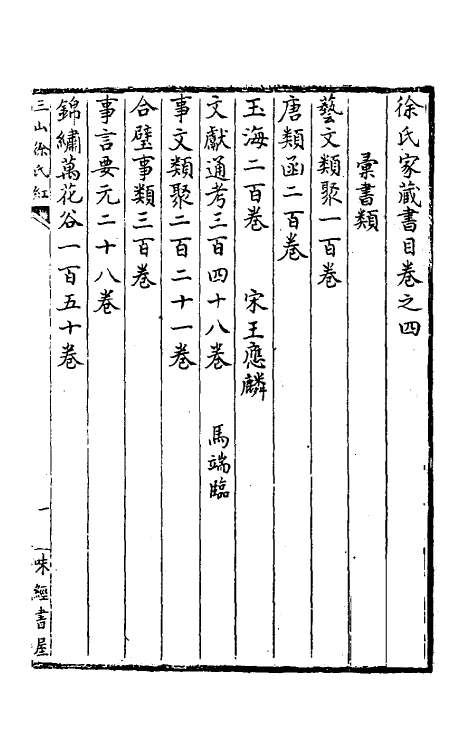 徐氏家藏書目卷之四
彙書類
藝文類聚一百卷
唐類函二百卷
玉海二百卷 宋王應麟
文獻通考三百四十八卷 馬端臨
事文類聚二百二十一卷
合璧事類三百卷
事言要元二十八卷
錦繡萬花谷一百五十卷
三山徐氏紅
一
味經書屋